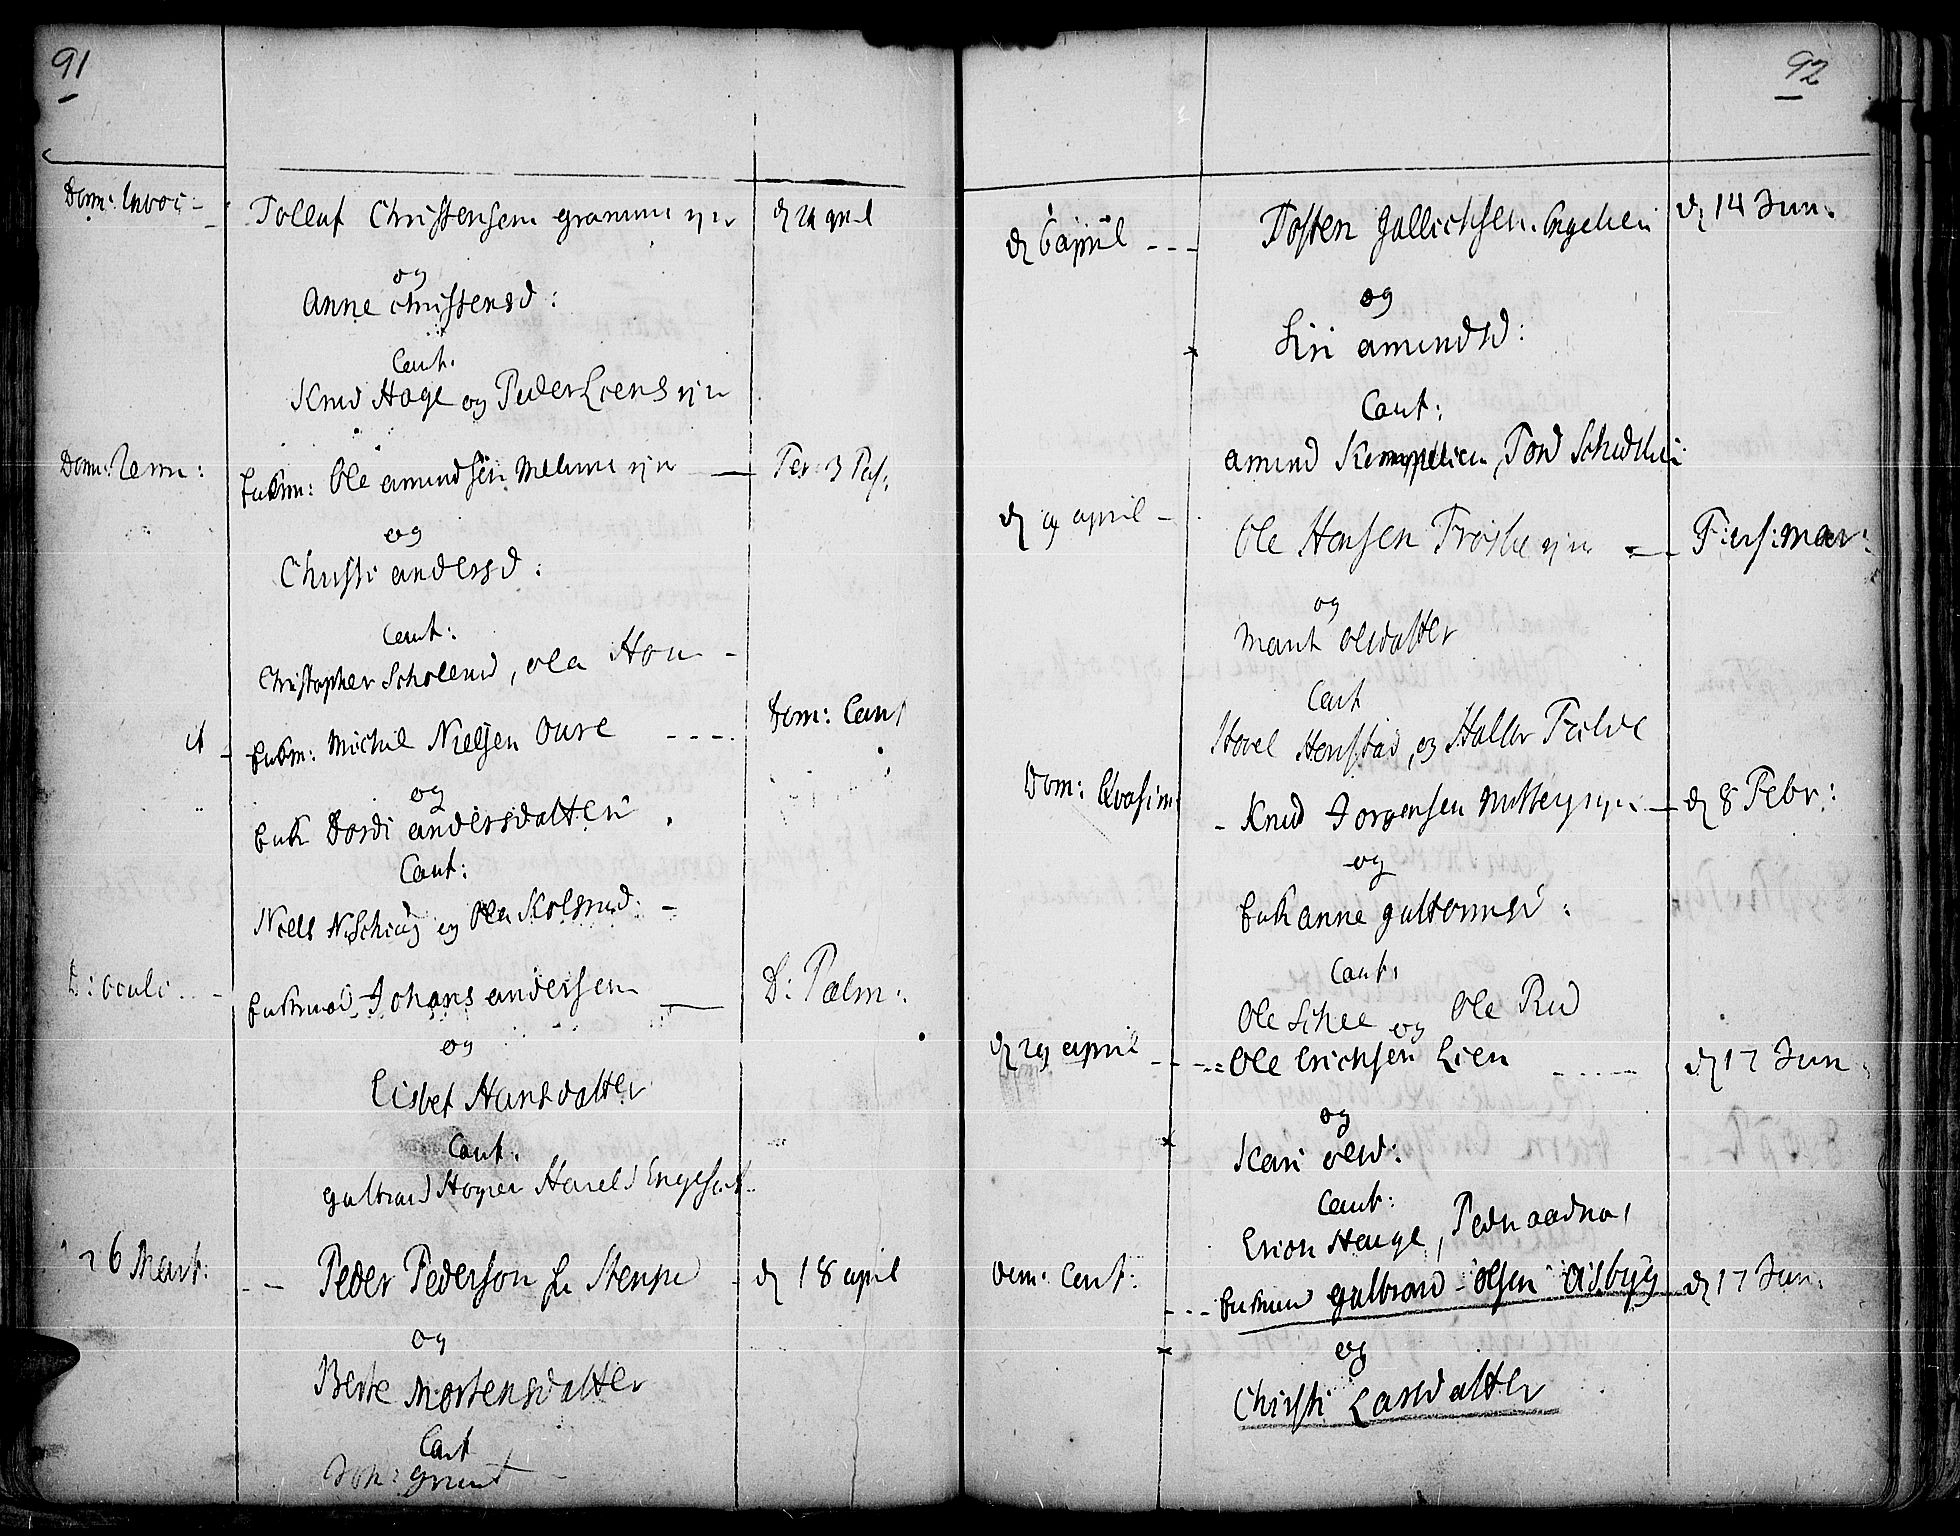 91
Dom: Invoc - Tollef Christensen gramm ejr d 21 april
og
Anne Christensd:
Caut.
Knud Hage og Peder Liens ejr
Dom: Remi: Enkm: Ole amundsen Melum ejr - Fer: 3 Pas:
og
Christi andersd:
Caut:
Christopher Scholerud, Ola Hou -
it - Enkm: Michil Nielsen Oure - - - Dom: Cant
og
Enk Dordi andersdatter
Caut:
Niels N.Schiag og Ola Kolsrud: -
D: Oculi - Enkmand Johans andersen - D: Palm:
og
Lisbet Hansdatter
Caut.
gulbrand Hogner Harald Engesæt
26 Mart: - - Peder Pederson fr Stenpe - d 18 april
og
Berte Mortensdatter
Caut
Joh: grunt -
92
d 6 april - - - Tosten gullichsen. Engelien d 14 Jun:
og
Siri amundsd:
Caut:
amund Kempelien, Tord
d 9 april - Ole Hansen Frøslie ejr - F: ass: mar:
og
Marit Olsdatter
Caut
Hovel Henstad, og Haller
Dom: Qvasim: - Knud Jorgensen ejr - d 8 Febr:
og
Enk anne guttormsd:
Caut:
Ole Schee og Ole Rud
d 29 april - - - Ole Erichsen Lien - - - d 17 Jun:
og
Kari Olsd:
Caut:
Erich Hauge, Peder aadnas
Dom: Cant: - - - Enkmand gulbrand - Olsen Aisbyg d 17 Jun:
og
Christi Larsdatter